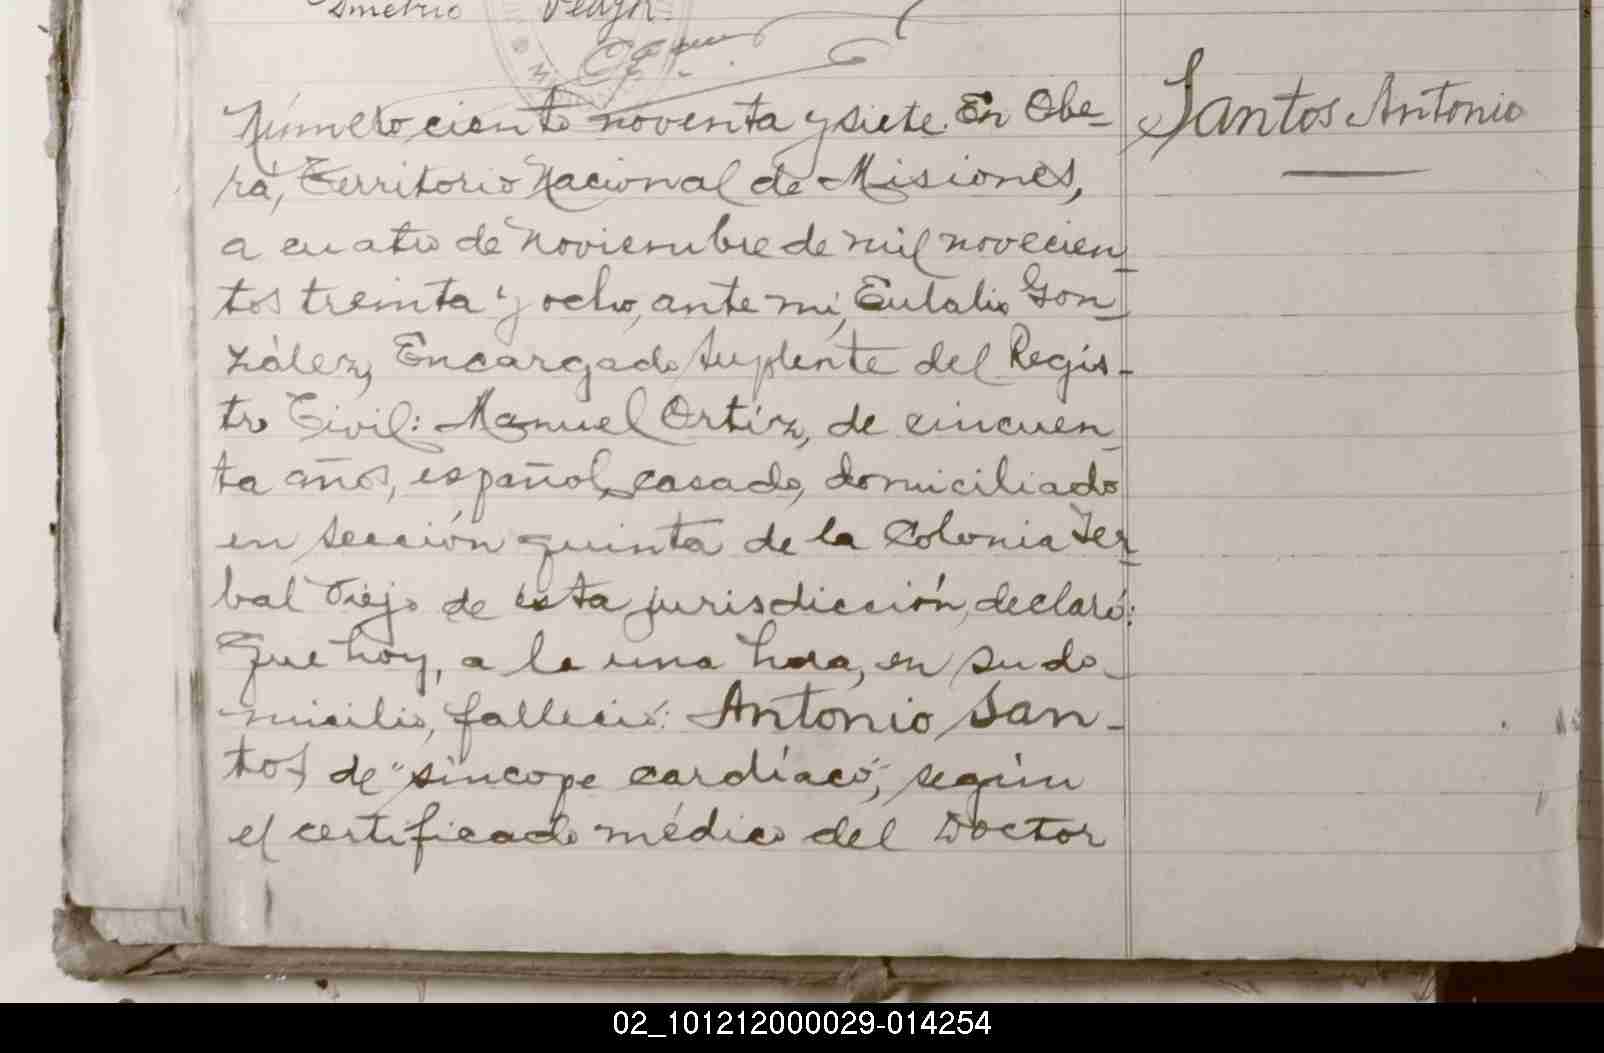 Santos Antonio
Número ciento noventa y siete. En Obe-
rá, Territorio Nacional de Misiones,
a cuatro de Noviembre de mil novecien_
tos treinta y ocho, ante mi, Eulalio Gon_
zález, Encargado Suplente del Regis-
tro Civil: Manuel Ortiz, de cincuen_
ta años, español, casado, domiciliado
en Sección quinta de la Colonia Yer_
bal Viejo de esta jurisdicción, declaró:
Que hoy, a la una hora, en su do_
micilio, falleció: Antonio San-
tos, de "síncope cardíaco", según
el certificado médico del Doctor
02_101212000029-014254